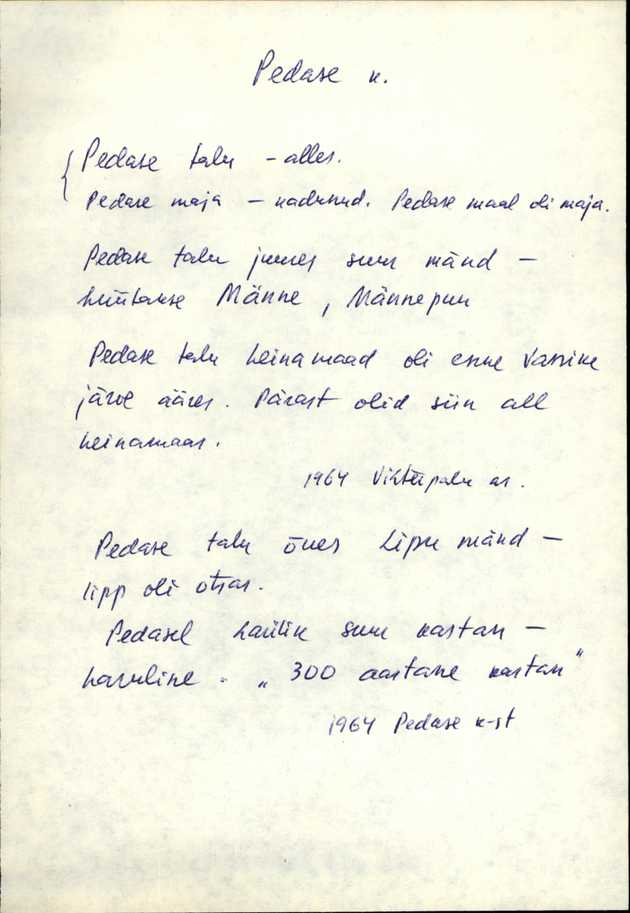 Pedase k.
Pedase talu - alles.
Pedase maja - kadunud. Pedase maal oli maja.
Pedase talu juures suur mänd -
hüütakse Männe, Männepuu
Pedase talu heinamaad oli enne
järve ääres. Pärast olid siin all
heinamaas.
1964 Vihterpalu as.
Pedase talu õues Lipu mänd -
lipp oli otsas.
Pedasel haruline suur kastan -
haruline. „300 aastane kastan"
1964 Pedase k-st